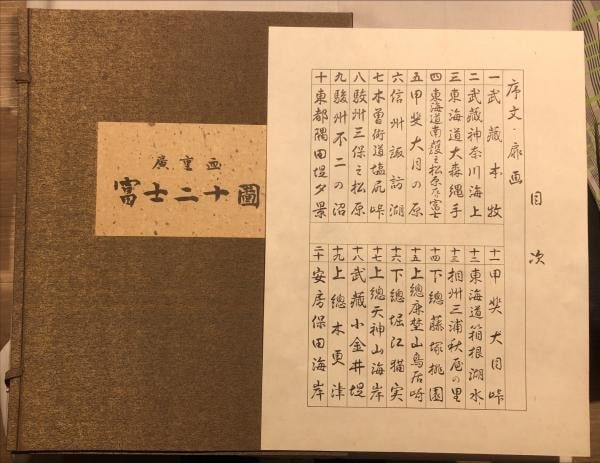 廣重画
富士二十圖
目次
序文・扉画
一 武藏本牧
二 武藏神奈川海上
三 東海道大森縄手
四 東海道南護之松原左富士
五 甲斐大月の原
六 信州諏訪湖
七 木曽街道塩尻峠
八 駿州三保之松原
九 駿州不二の沼
十 東都隅田堤夕景
十一 甲斐犬目峠
十二 東海道箱根湖水
十三 相州三浦秋屋の里
十四 下總藤塚桃園
十五 上總鹿埜山鳥居崎
十六 下總堀江猫実
十七 上總天神山海岸
十八 武藏小金井堤
十九 上總木更津
二十 安房保田海岸